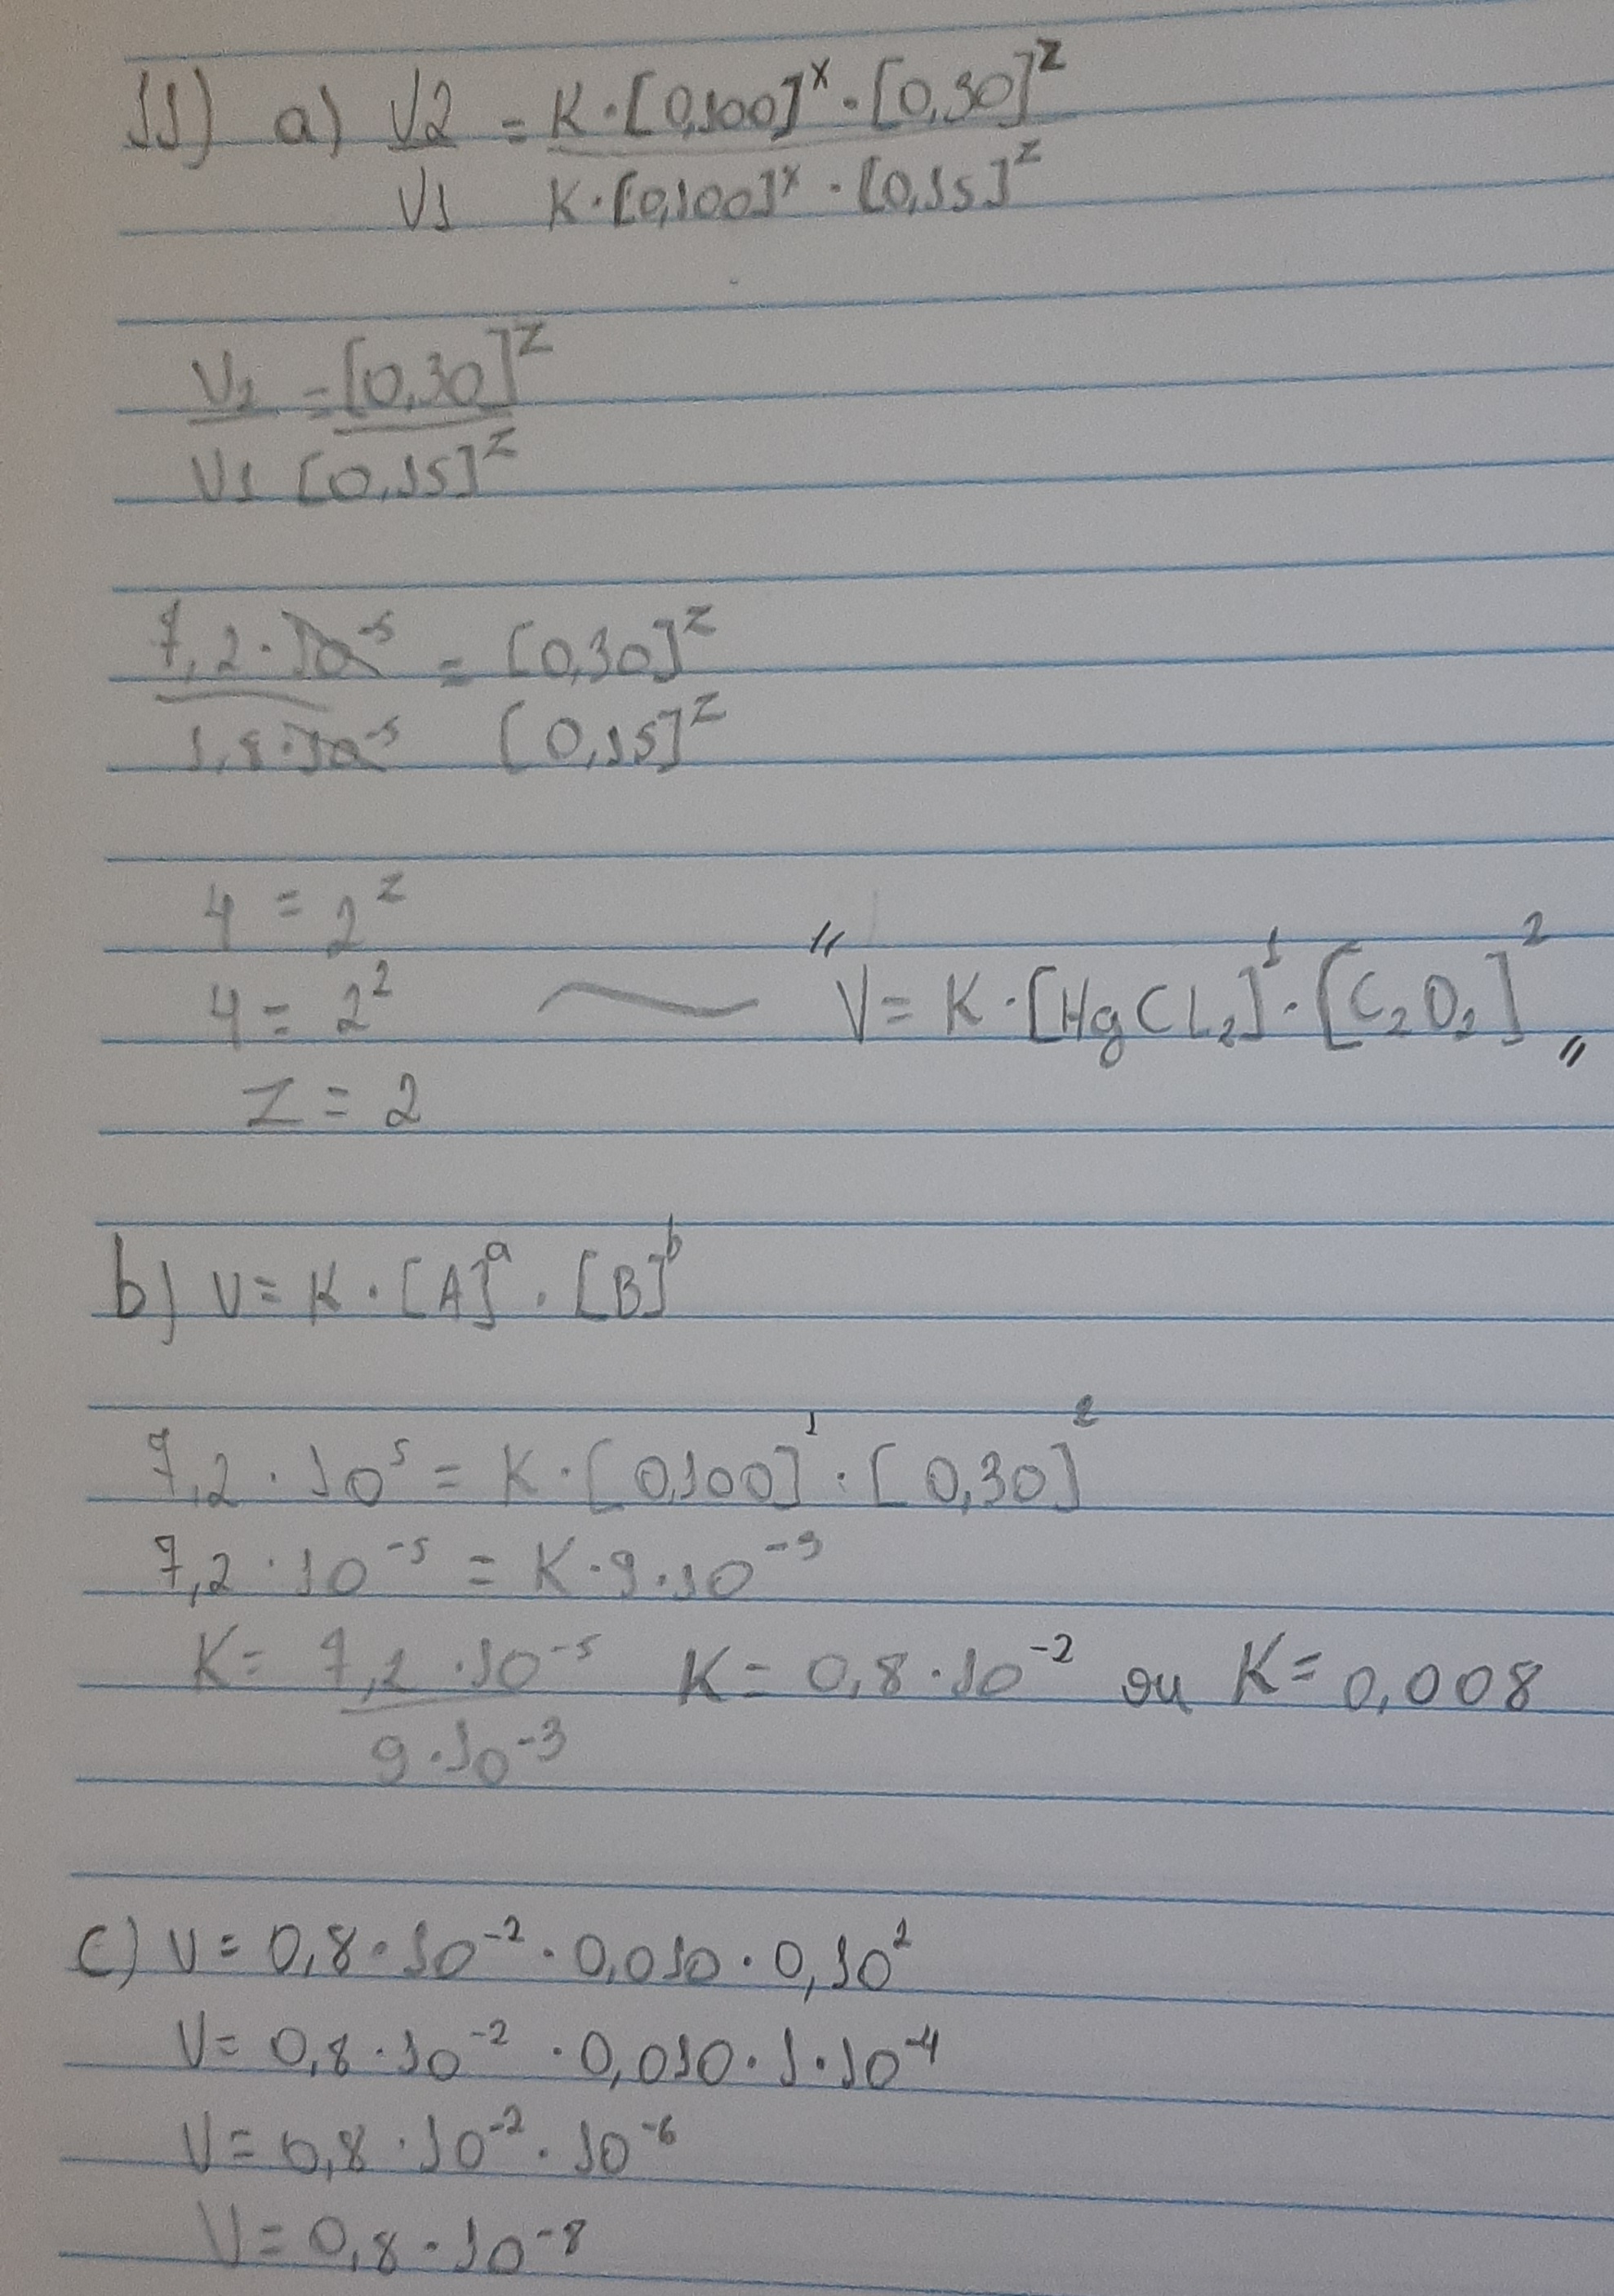 11) a) V2 = K·[0,100]ˣ·[0,30]ᶻ
V1 K·[0,100]ˣ·[0,15]ᶻ
V2 = [0,30]ᶻ
V1 [0,15]ᶻ
7,2·10⁻⁵ = [0,30]ᶻ
1,8·10⁻⁵ [0,15]ᶻ
4 = 2ᶻ
4 = 2² ~ " V = K·[HgCl₂]¹·[C₂O₂]² "
Z = 2
b) V = K·[A]ᵃ·[B]ᵇ
7,2·10⁵ = K·[0,100]¹·[0,30]²
7,2·10⁻⁵ = K·9·10⁻³
K = 7,2·10⁻⁵ K = 0,8·10⁻² ou K = 0,008
9·10⁻³
c) V = 0,8·10⁻²·0,010·0,10²
V = 0,8·10⁻²·0,010·1·10⁻⁴
V = 0,8·10⁻²·10⁻⁶
V = 0,8·10⁻⁸